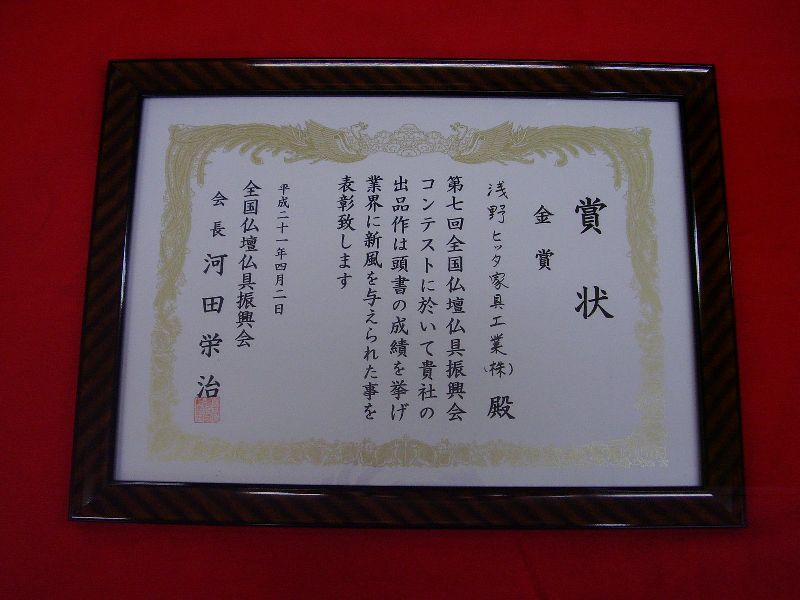 賞状
金賞
浅野ヒッタ家具工業(株)殿
第七回全国仏壇仏具振興会
コンテストに於いて貴社の
出品作は頭書の成績を挙げ
業界に新風を与えられた事を
表彰致します
平成二十一年四月二日
全国仏壇仏具振興会
会長 河田栄治